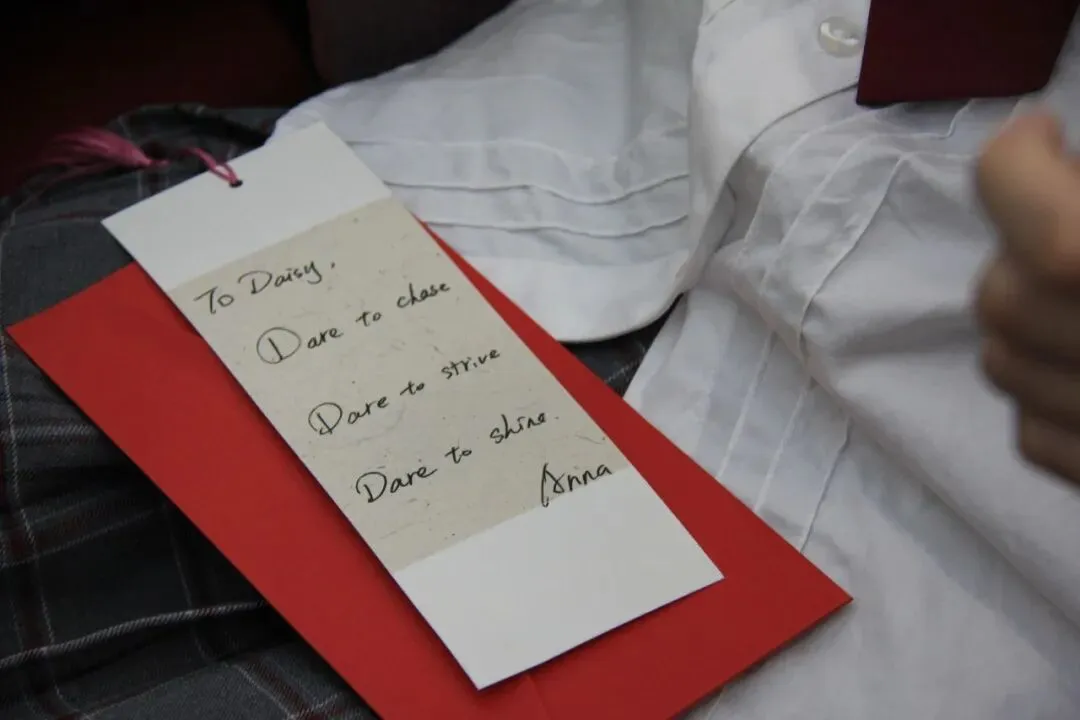 To Daisy,
Dare to chase
Dare to strive
Dare to shine.
Anna